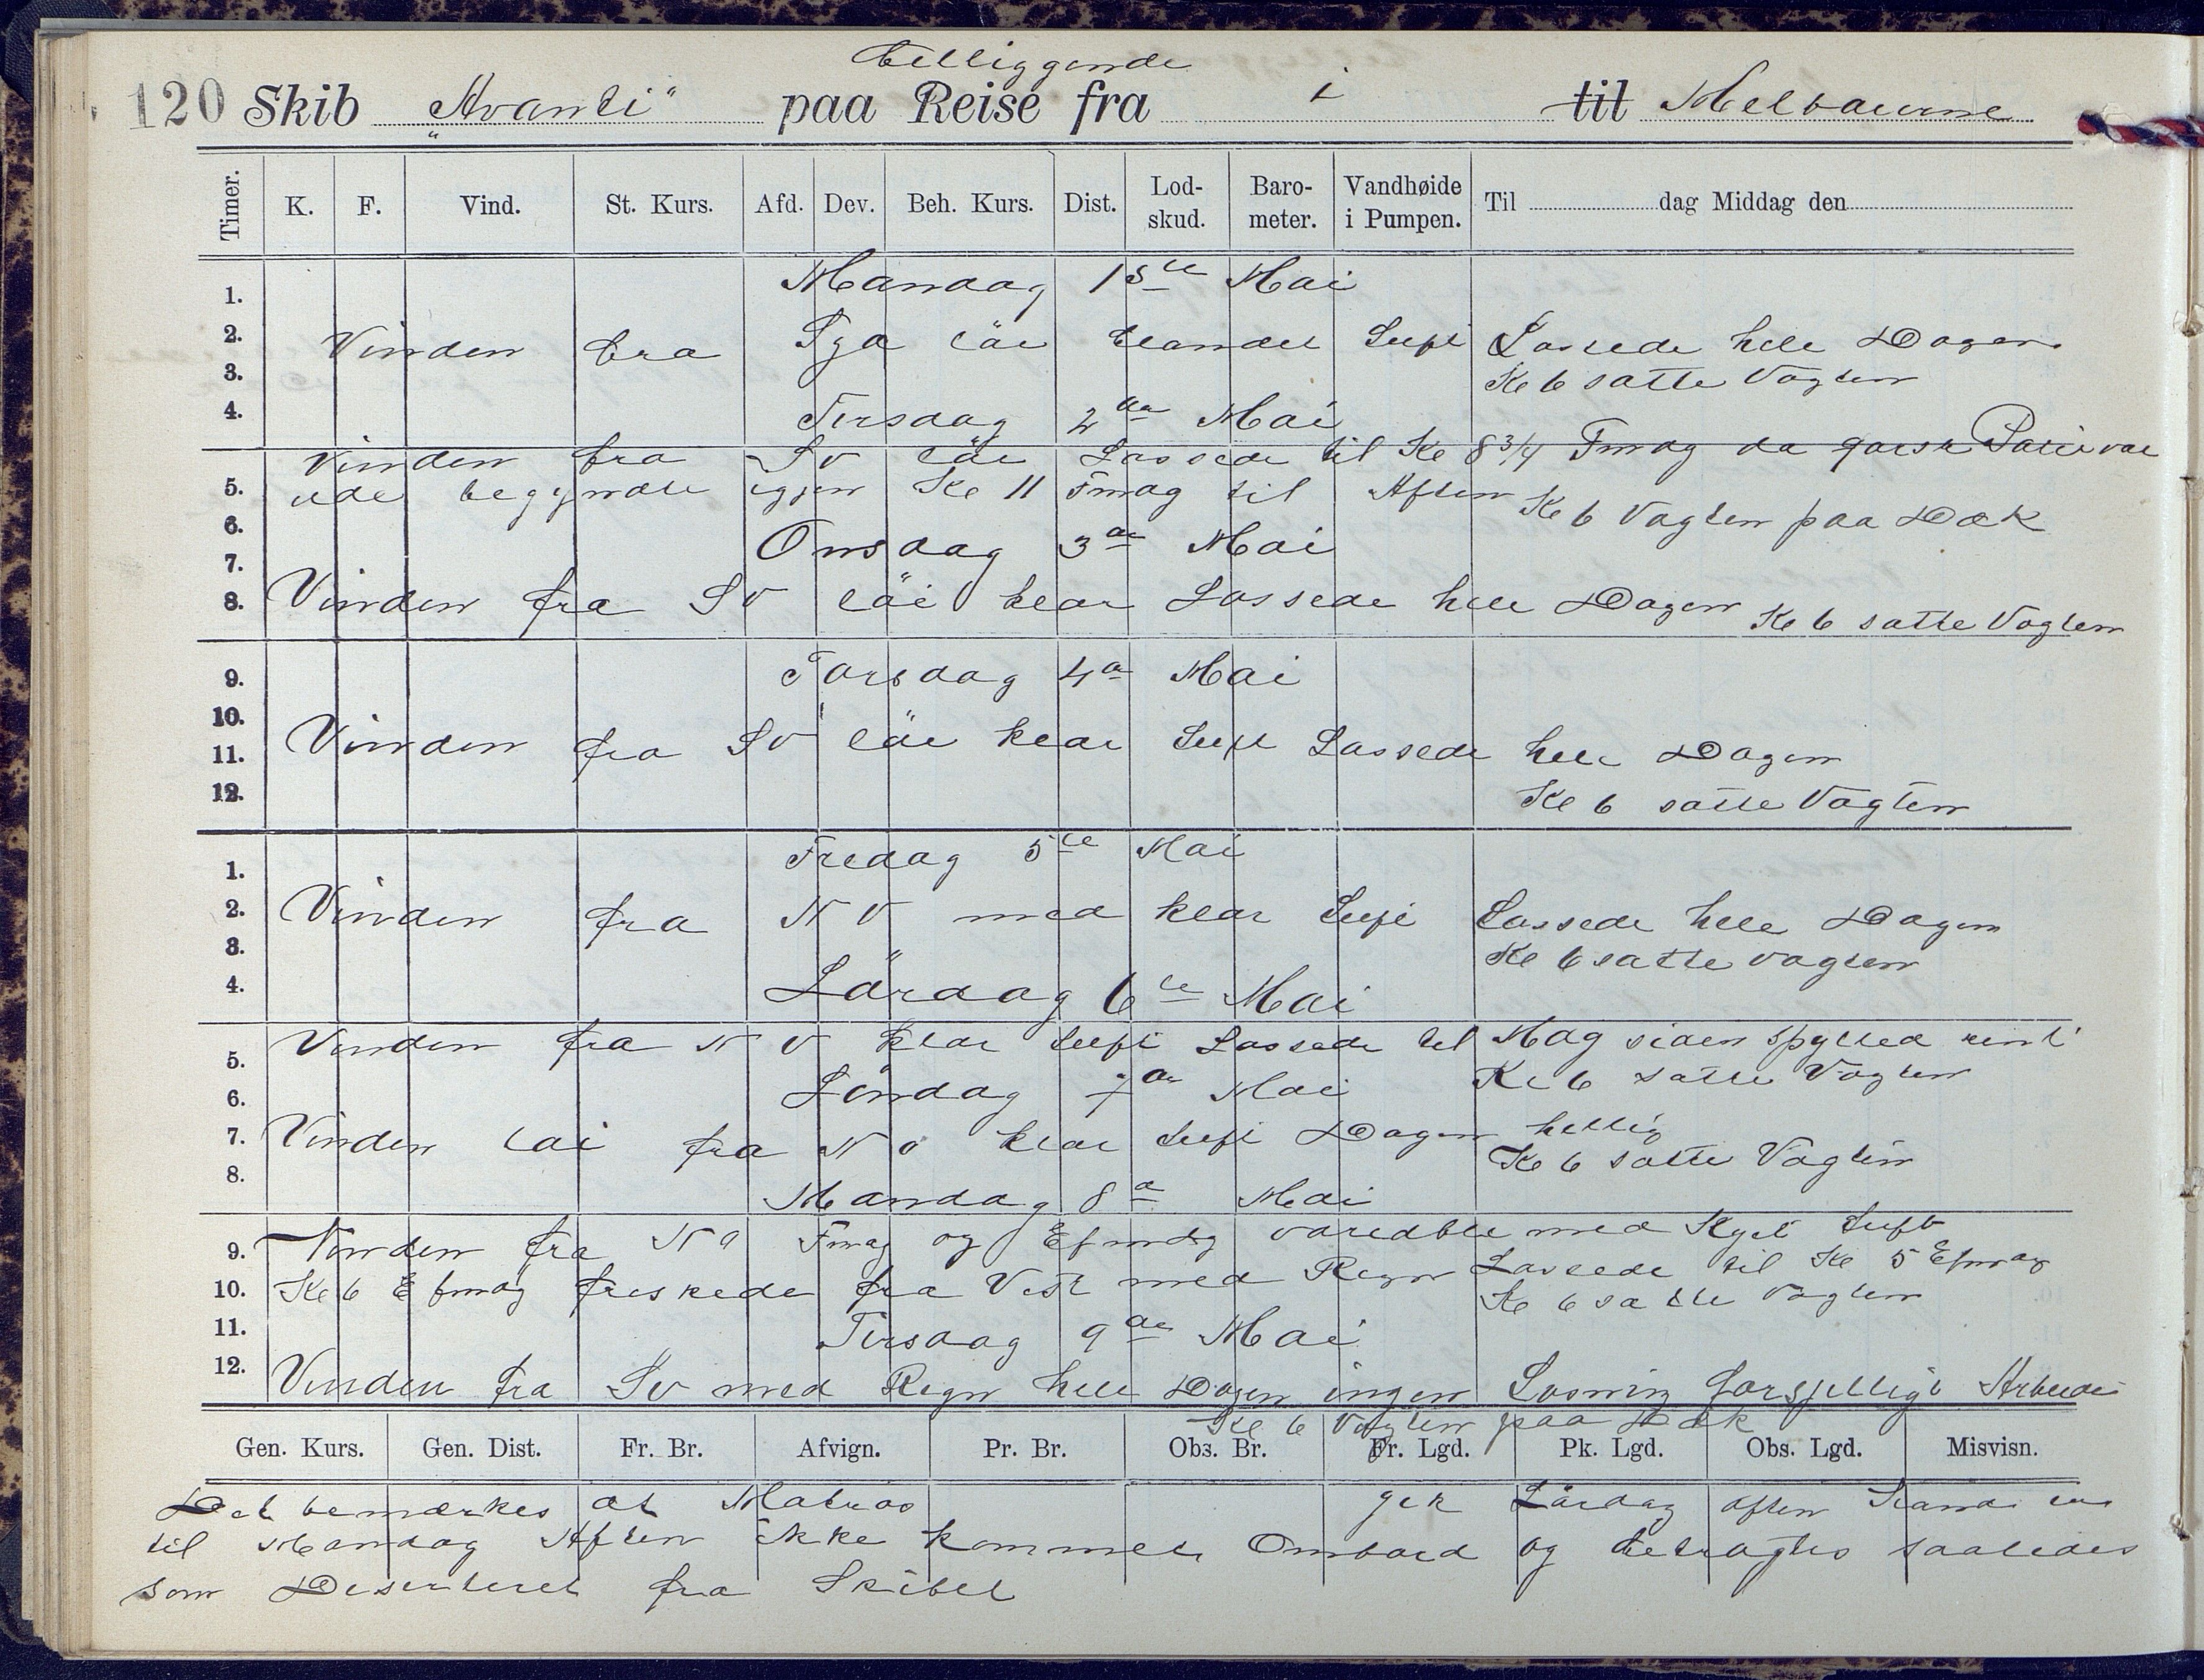 beliggende
120 Skib "Avanti" paa Reise fra i til Melbourne
Timer. K. F. Vind. St. Kurs. Afd. Dev. Beh. Kurs. Dist. Lod-skud. Baro-meter. Vandhøide i Pumpen. Til dag Middag den
Mandag 1ste Mai
1.
2. Vinden fra Syd löi blandet Luft Lossede hele Dagen
3. Kl 6 satte Vagten
4. Tirsdag 2den Mai
Vinden fra SV löi Lossede til Kl 8 3/4 Fmdg da var
5. ude begyndte igjen Kl 11 Fmdg til Aften Kl 6 Vagten paa Dæk
6. Onsdag 3de Mai
7.
8. Vinden fra SV löi klar Lossede hele Dagen Kl 6 satte Vagten
9. Torsdag 4de Mai
10.
11. Vinden fra SV löi klar Luft Lossede hele Dagen
12. Kl 6 satte Vagten
1. Fredag 5te Mai
2. Vinden fra NV med klar Luft Lossede hele Dagen
3. Kl 6 satte vagten
4. Lördag 6te Mai
5. Vinden fra NV klar Luft Lossede til Mdg siden spylled rent
6. Söndag 7de Mai Kl 6 satte Vagten
7. Vinden löi fra NO klar Luft Dagen hellig
8. Kl 6 satte Vagten
Mandag 8de Mai
9. Vinden fra NO Fmdg og Efmdg varedble med Luft
10. Kl 6 Efmdg friskede fra Vest med Regn Lossede til Kl 5 Efmdg
Kl 6 satte Vagten
11. Tirsdag 9de Mai
12. Vinden fra SV med Regn hele Dagen ingen Losning forsjelligt Arbeide
Kl 6 Vagten paa Dæk
Gen. Kurs. Gen. Dist. Fr. Br. Afvign. Pr. Br. Obs. Br. Fr. Lgd. Pk. Lgd. Obs. Lgd. Misvisn.
Det bemærkes at Matros gik Lördag aften iland
til Mandag Aften ikke kommen Ombord og betragtes saaledes
som Deserteret fra Skibet